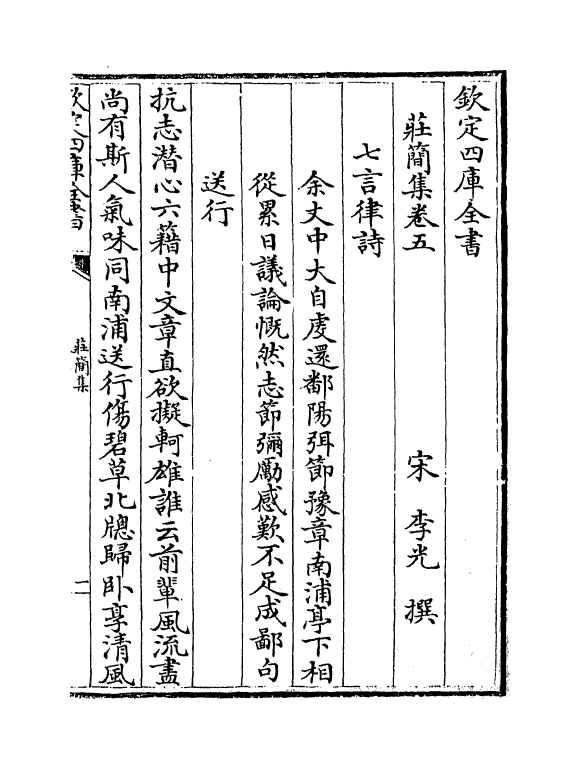 欽定四庫全書
莊簡集卷五
宋 李光 撰
七言律詩
余丈中大自䖍還鄱陽弭節豫章南浦亭下相
從累日議論慨然志節彌勵感歎不足成鄙句
送行
抗志潛心六籍中文章直欲擬軻雄誰云前輩風流盡
尚有斯人氣味同南浦送行傷碧草北牕歸卧享清風
欽定四庫全書
莊簡集